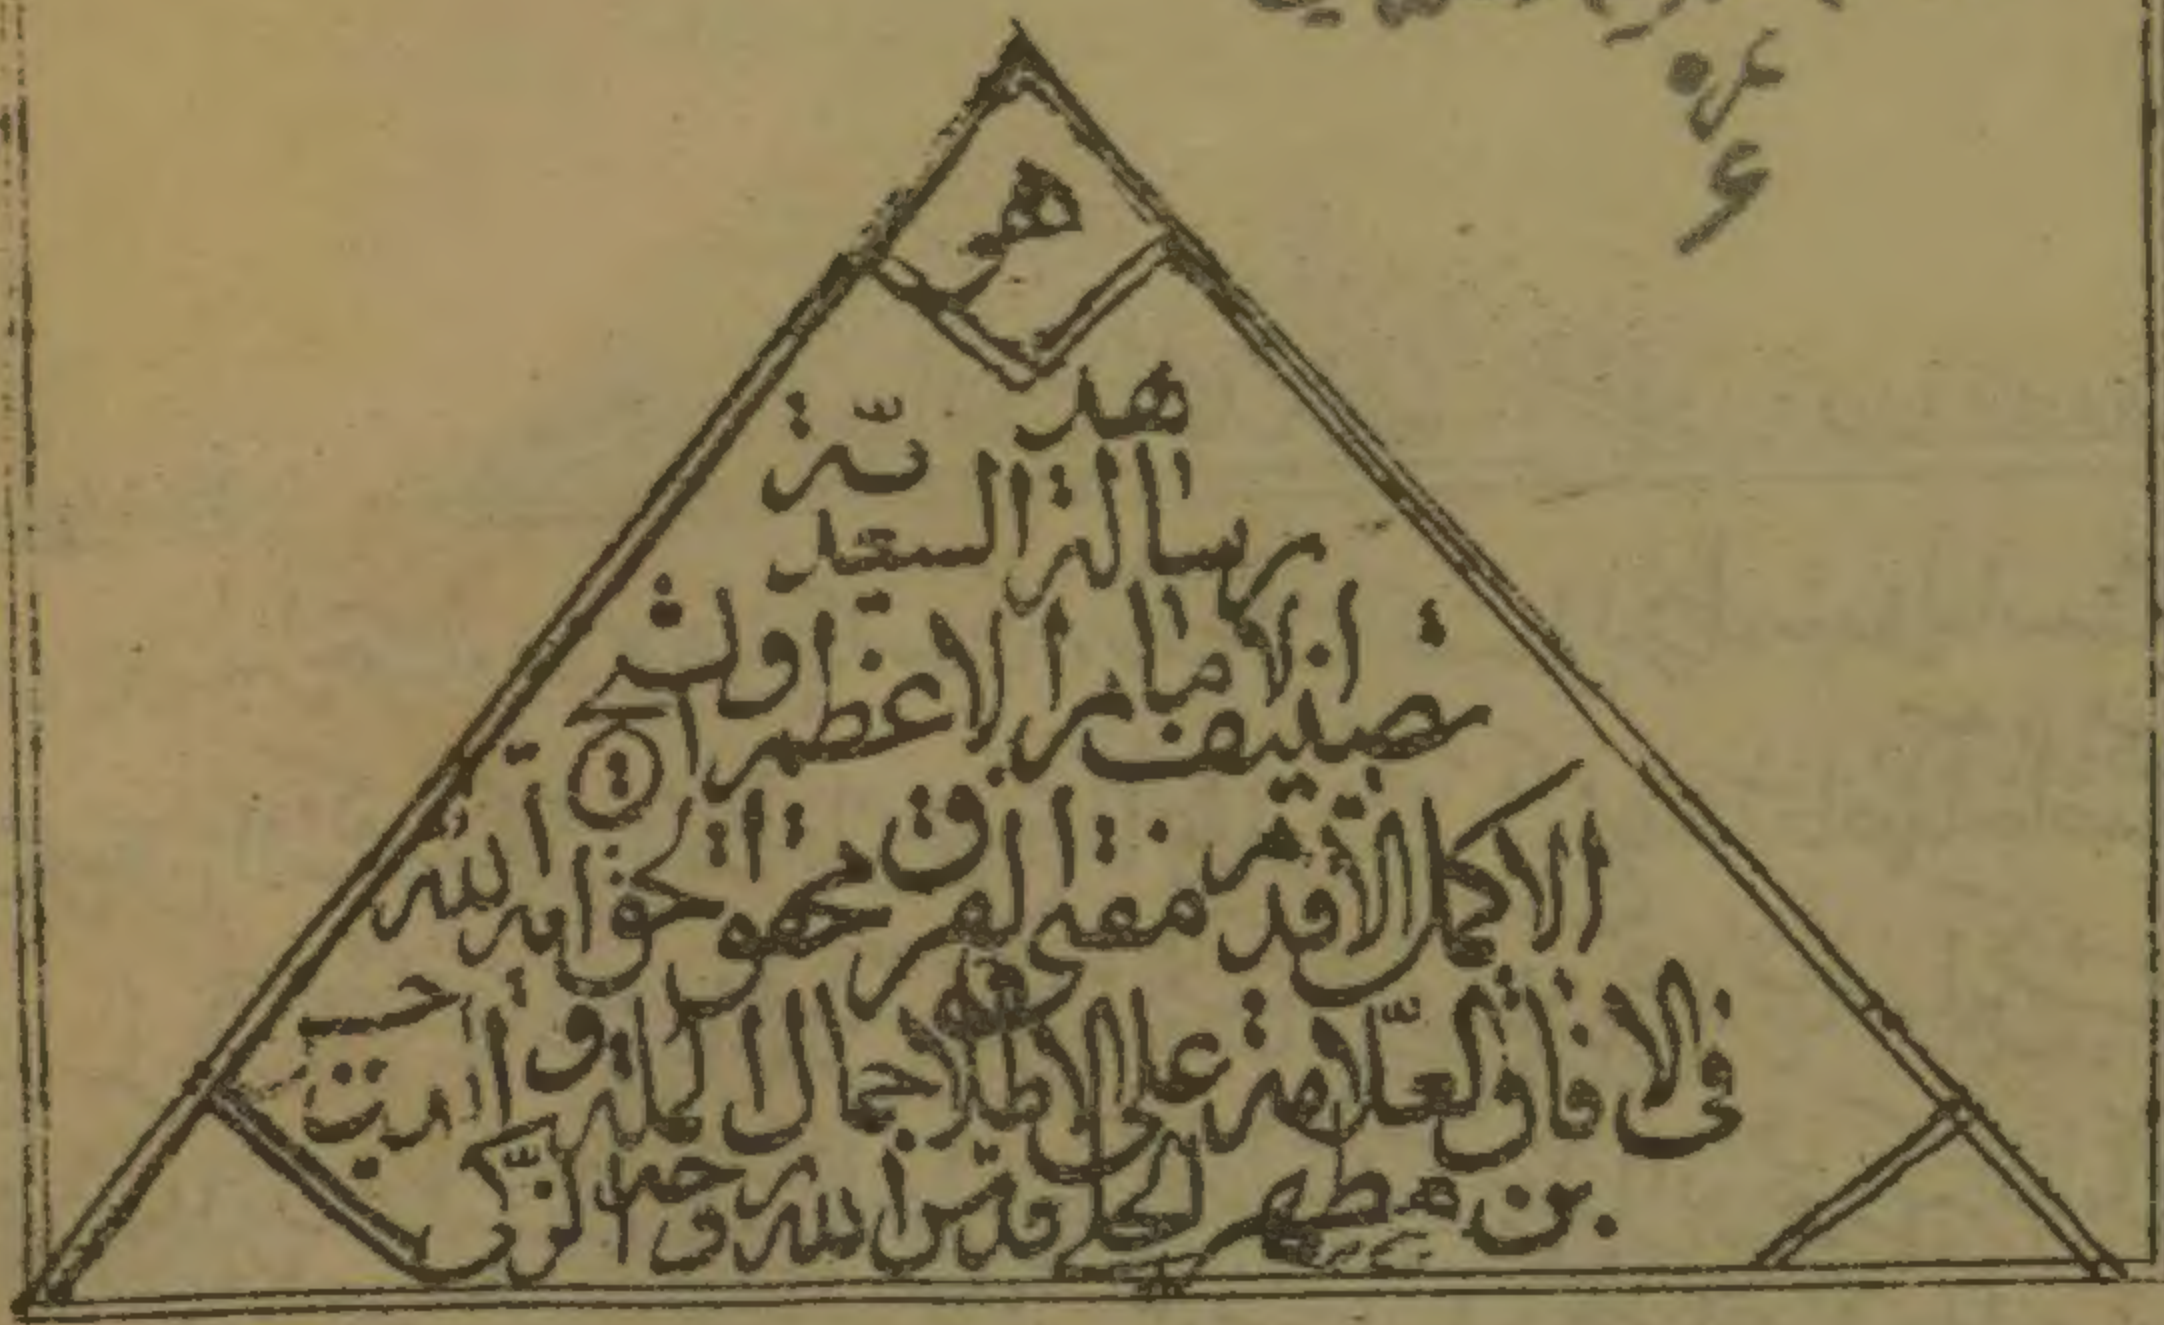 هو
هذه
رسالة السعدية
تصنيف الامام الاعظم و
الاكمل الاقدم مفتى الفرق محقق الحق آية الله
فى الافاق العلامة على الاطلاق جمال الملة و الدين
بن مطهر الحلى قدس الله روحه الزكى